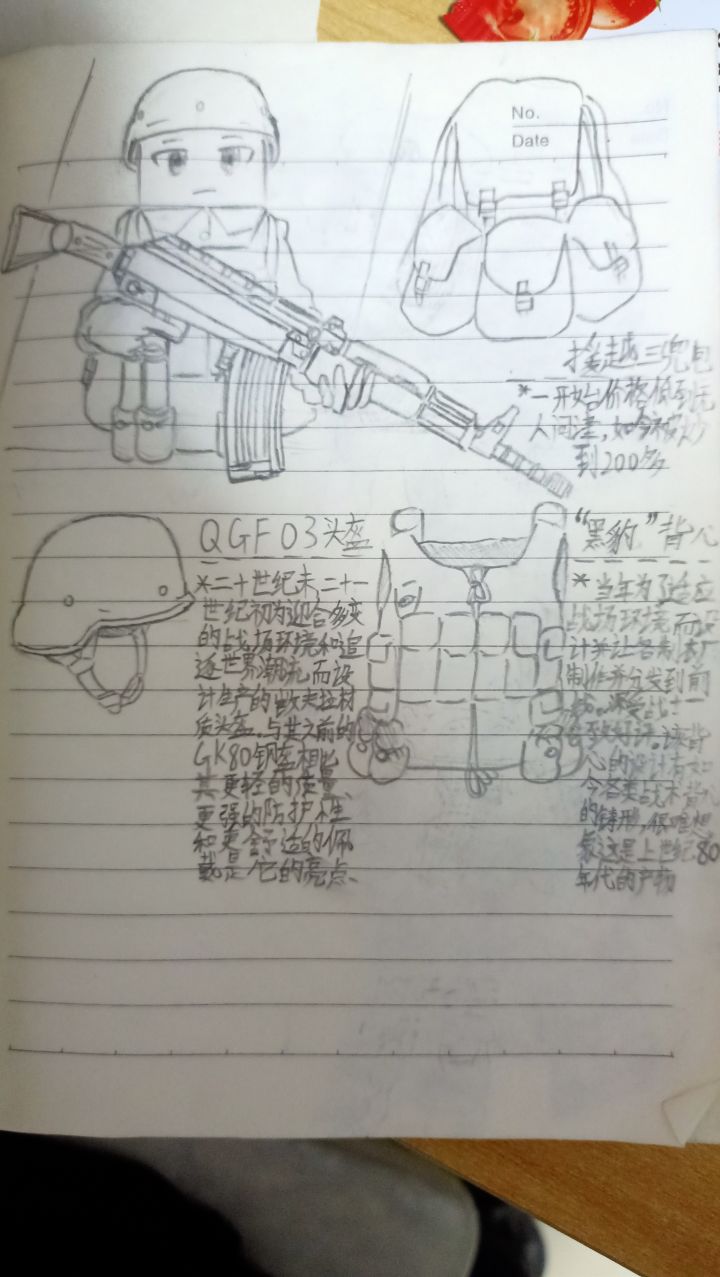 No.
Date
援越三兜包
*一开始价格低到无
人问津,如今被炒
到200多
QGF03头盔
*二十世纪末,二十一
世纪初为迎合多变
的战场环境和追
逐世界潮流而设
计生产的
质头盔.与其之前的
GK80钢盔相比
其更轻的质量、
更强的防护性
和更舒适的佩
戴是它的亮点、
“黑豹”背心
*当年为了适应
战场环境而设
计并让各制衣厂
制作并分发到前
线。深受战士
好评。该背
心的设计有如
今各类战术背心
的雏形,很难想
象这是上世纪80
年代的产物